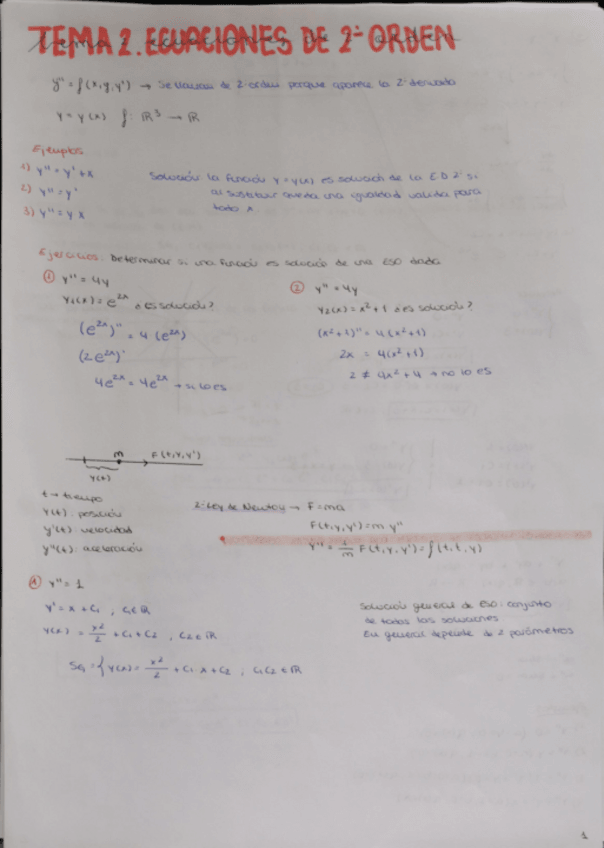 TEMA 2. ECUACIONES DE 2º ORDEN
y'' = f(x,y,y') → Se llaman de 2º orden porque aparece la 2ª derivada
y = y(x) f: ℝ³ → ℝ
Ejemplos
1) y'' = y' + x
2) y'' = y'
3) y'' = y x
Solución: la función y = y(x) es solución de la ED 2º si
al sustituir queda una igualdad válida para
todo x.
Ejercicios: Determinar si una función es solución de una ESO dada
① y'' = 4y
y₁(x) = e^2x ¿es solución?
(e^2x)'' = 4 (e^2x)
(2e^2x)'
4e^2x = 4e^2x → si lo es
② y'' = 4y
y₂(x) = x² + 1 ¿es solución?
(x²+1)'' = 4(x²+1)
2x = 4(x²+1)
2 ≠ 4x² + 4 → no lo es
m F(t,y,y')
y(t)
t → tiempo
y(t): posición
y'(t): velocidad
y''(t): aceleración
2ª Ley de Newton → F = ma
F(t,y,y') = m y''
y'' = 1/m F(t,y,y') = f(t,t,y)
① y'' = 1
y' = x + C₁ , C₁ ∈ ℝ
y(x) = x²/2 + C₁ + C₂ , C₂ ∈ ℝ
SG = { y(x) = x²/2 + C₁ x + C₂ , C₁ C₂ ∈ ℝ
Solución general de ESO: conjunto
de todas las soluciones
En general depende de 2 parámetros
1